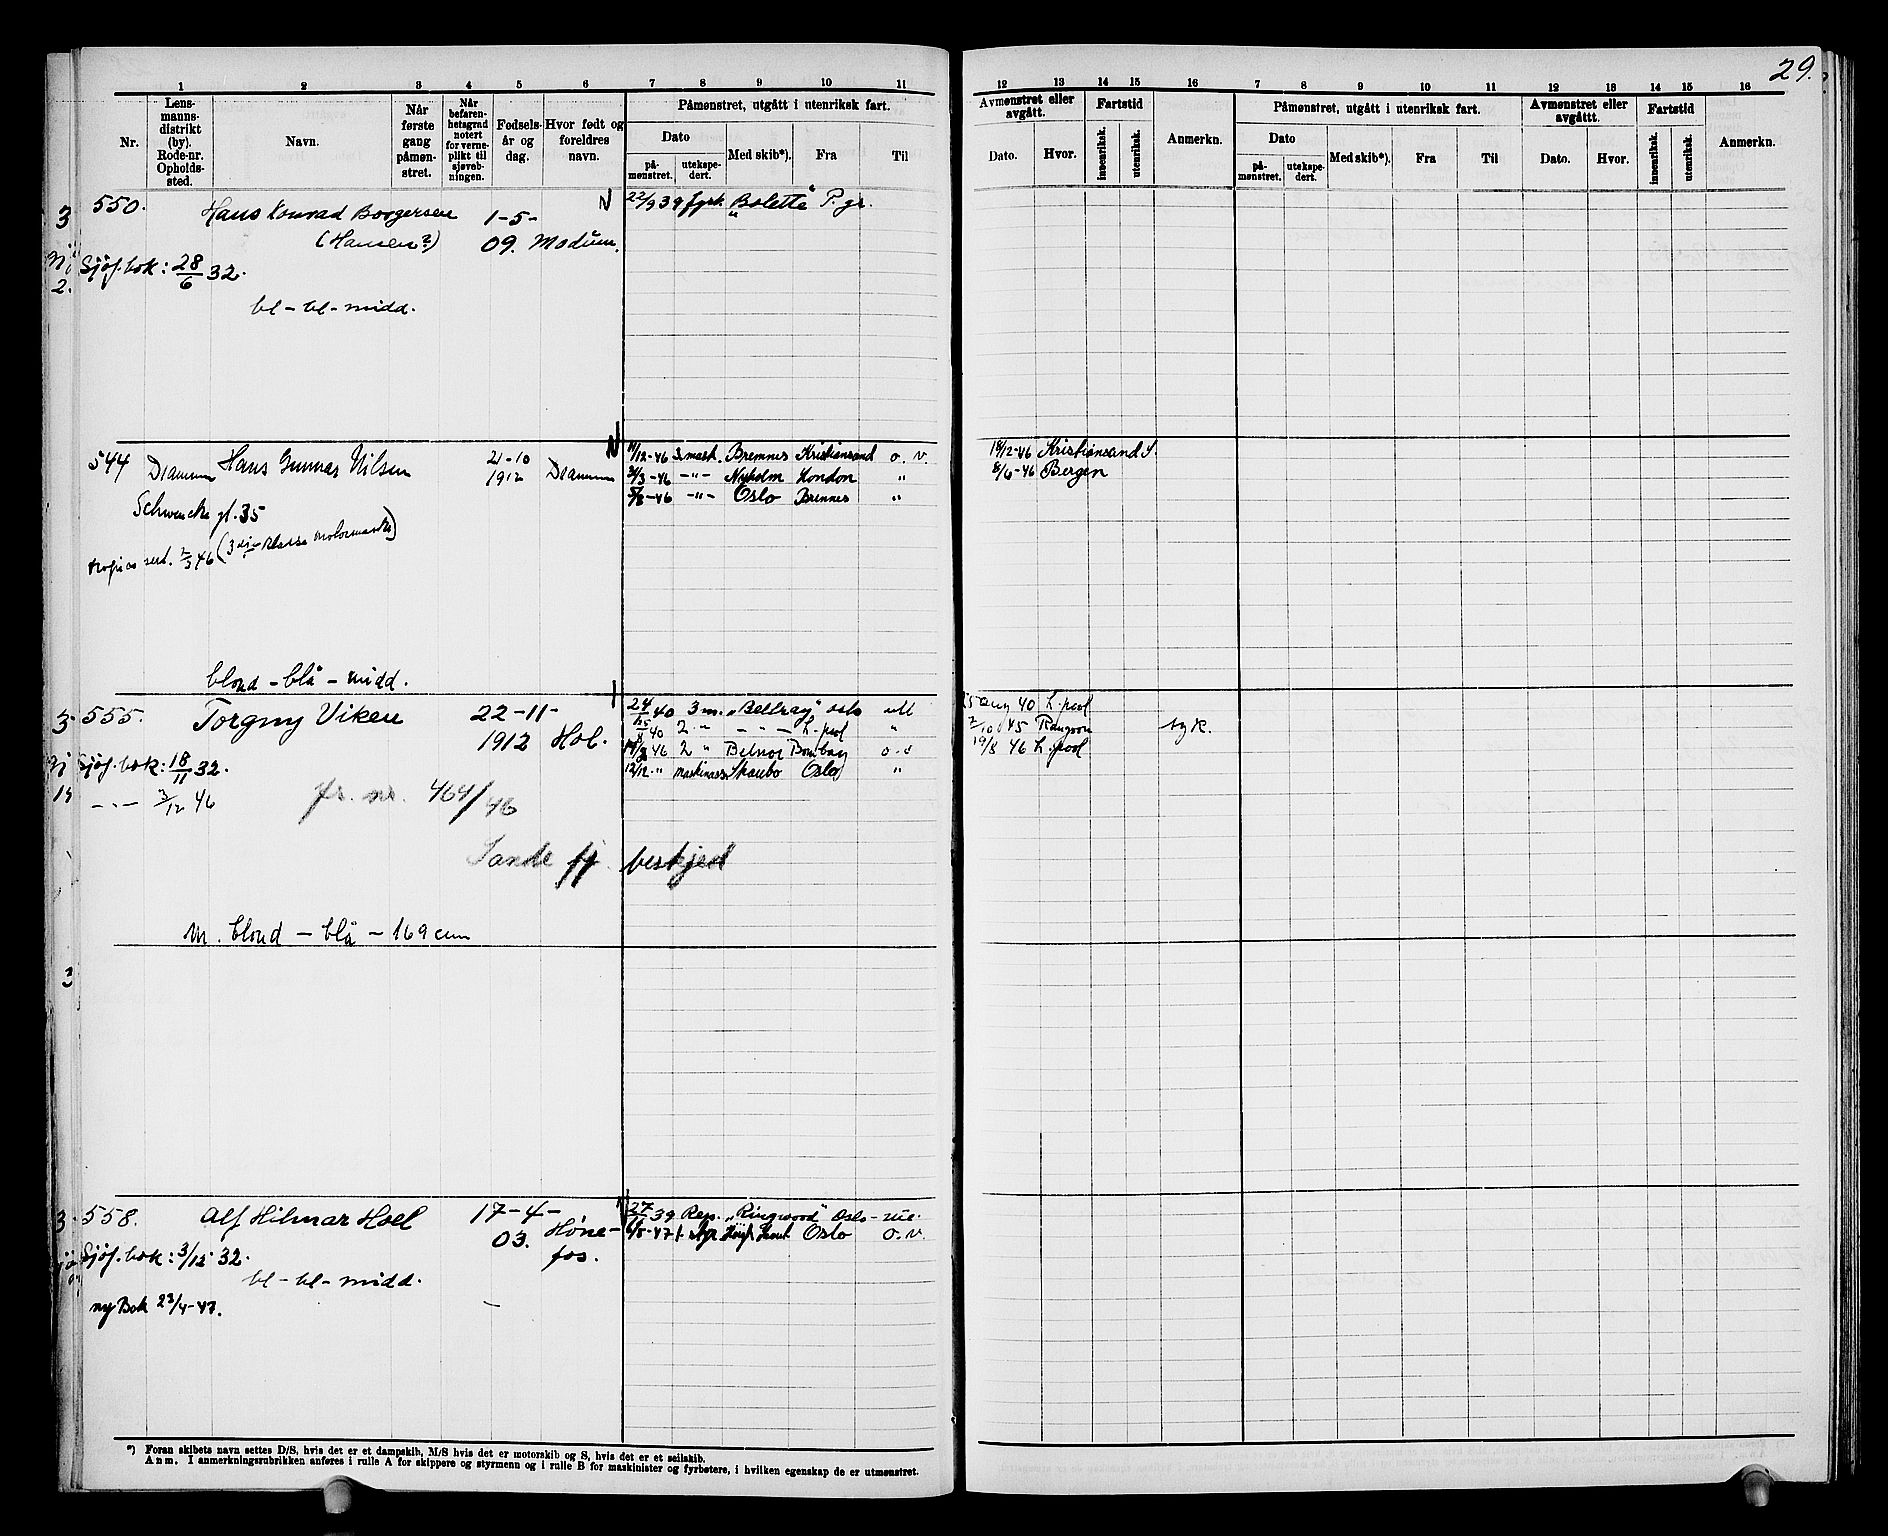 29.
1 2 3 4 5 6 7 8 9 10 11
Nr.
Lens-
manns-
distrikt
(by).
Rode-nr.
Opholds-
sted.
Navn.
Når
første
gang
påmøn-
stret.
Når
befaren-
hetsgrad
notert
for verne-
plikt til
sjøveb-
ningen.
Fødsels-
år og
dag.
Hvor født og
foreldres
navn.
Påmønstret, utgått i utenriksk fart.
Dato
på-
mønstret.
utekspe-
dert.
Med skib*).
Fra
Til
12 13 14 15 16 7 8 9 10 11 12 13 14 15 16
Avmønstret eller
avgått.
Dato.
Hvor.
Fartstid
innenriksk.
utenriksk.
Anmerkn.
Påmønstret, utgått i utenriksk fart.
Dato
på-
mønstret.
utekspe-
dert.
Med skib*).
Fra
Til
Avmønstret eller
avgåttt.
Dato.
Hvor.
Fartstid
innenriksk.
utenriksk.
Anmerkn.
550. Hans Konrad Borgersen 1-5- N 22/9 39 fyrb. "Bolette" P. gr.
(Hansen?) 09. Modum.
Sjøf.bok: 28/6 32.
bl - bl - midd.
544 Drammen Hans Gunnar Nilsen 21-10 1912 Drammen N
11/12-46 3 mask. Bremnes Kristiansand o. v. 18/12-46 Kristiansand S.
-46 -"- Nyholm London " 8/6-46 Bergen
-46 -"- Oslo Bremnes "
Schwencks gt. 35
46 (3dje klasse
blond - blå - midd.
555. Torgny Viken 22-11- 1912 Hol.
40 3 m. "Bellray" Oslo utl 15 aug 40 L.pool
40 2 " - " - L.pool " 2/10 45 Rangoon syk.
46 2 " Belnor Bombay o.v 19/8 46 L.pool
12/12 " maskinass Skaubo Oslo "
Sjøf.bok: 18/11 32.
- " - 3/12 46
fr. nr. 464/46
Sande fj. beskjed
m. blond - blå - 169 cm
558. Alf Hilmar Hoel 17-4- 03. Hønefos.
39 Rep. "Ringwood" Oslo - ute.
-47 Høegh Oslo o.v.
Sjøf.bok: 3/12 32.
bl - bl - midd.
ny Bok 23/4-47.
*) Foran skibets navn settes D/S, hvis det er et dampskib, M/S hvis det er motorskib og S, hvis det er et seilskib.
Anm. I anmerkningsrubrikken anføres i rulle A for skippere og styrmenn og i rulle B for maskinister og fyrbøtere, i hvilken egenskap de er utmønstret.